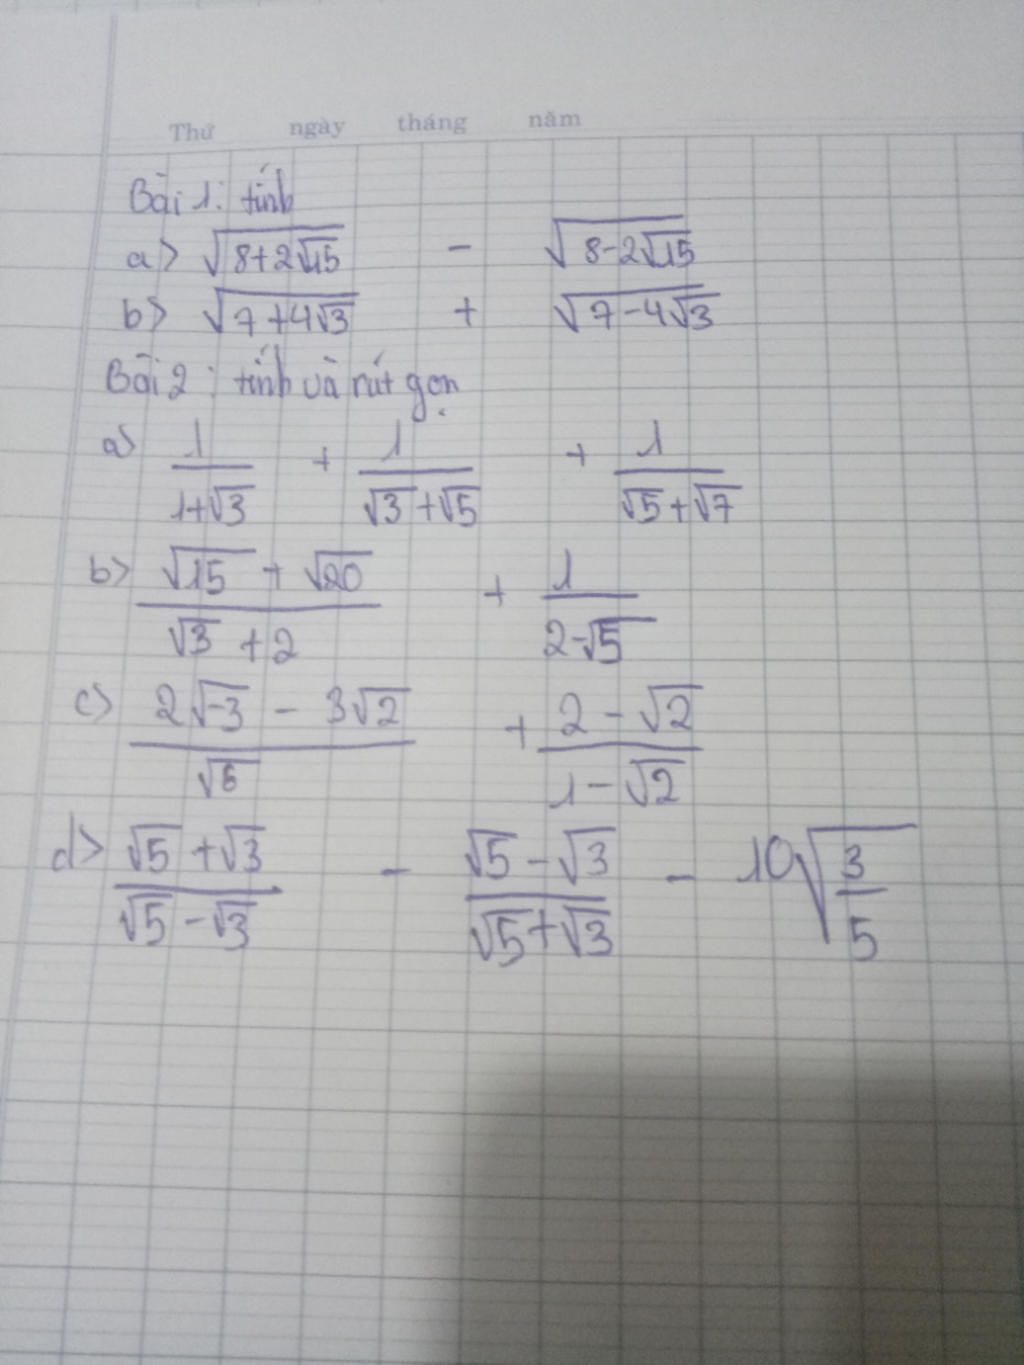 Thứ ngày tháng năm
Bài 1: tính
a> √(8+2√15) - √(8-2√15)
b> √(7+4√3) + √(7-4√3)
Bài 2: tính và rút gọn
a> 1/(1+√3) + 1/(√3+√5) + 1/(√5+√7)
b> (√15 + √20)/(√3 + 2) + 1/(2-√5)
c> (2√-3 - 3√2)/√6 + (2-√2)/(1-√2)
d> (√5+√3)/(√5-√3) - (√5-√3)/(√5+√3) - 10√(3/5)